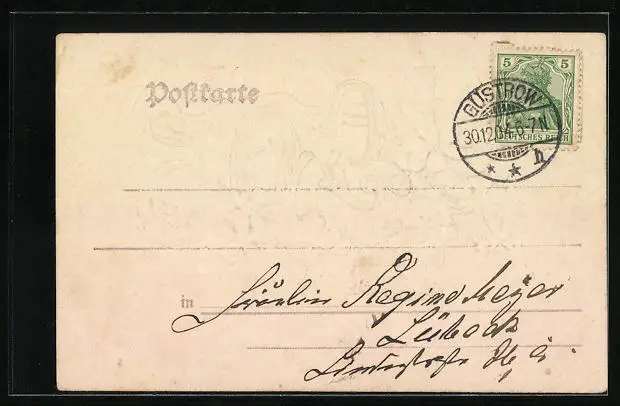 Postkarte
5 5
GÜSTROW
30.12.04. 6-7N
DEUTSCHES REICH
h
in Fräulein Regine Meyer
Lübeck